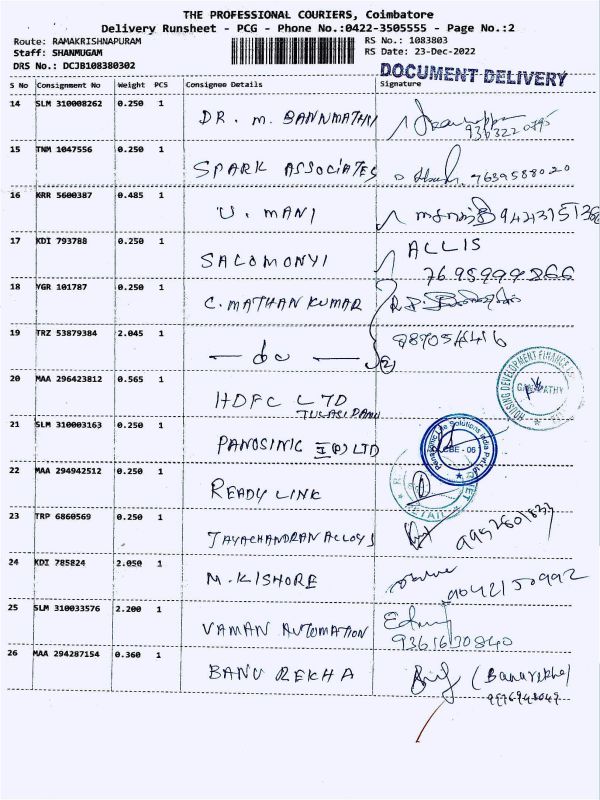 THE PROFESSIONAL COURIERS, Coimbatore
Delivery Runsheet - PCG - Phone No.:0422-3505555 - Page No.:2
Route: RAMAKRISHNAPURAM RS No.: 1083803
Staff: SHANMUGAM RS Date: 23-Dec-2022
DRS No.: DCJB108380302 DOCUMENT DELIVERY
S No Consignment No Weight PCS Consignee Details Signature
14 SLM 310008262 0.250 1 DR. M. BANUMATHI
15 TNM 1047556 0.250 1 SPARK ASSOCIATES 7639588020
16 KRR 5600387 0.485 1 U. MANI
17 KDI 793788 0.250 1 SALOMONYI ALLIS
18 YGR 101787 0.250 1 C. MATHAN KUMAR
19 TRZ 53879384 2.045 1 — do —
20 MAA 296423812 0.565 1 HDFC LTD
HOUSING DEVELOPMENT FINANCE
GANAPATHY
21 SLM 310003163 0.250 1 PANOSINIC LTD
CBE - 06
22 MAA 294942512 0.250 1 READY LINK
RETAIL
23 TRP 6860569 0.250 1 JAYACHANDRAN ALLOYS
24 KDI 785824 2.050 1 M. KISHORE 9042150992
25 SLM 310033576 2.200 1 VAMAN AUTOMATION
26 MAA 294287154 0.360 1 BANU REKHA (Banurekha)